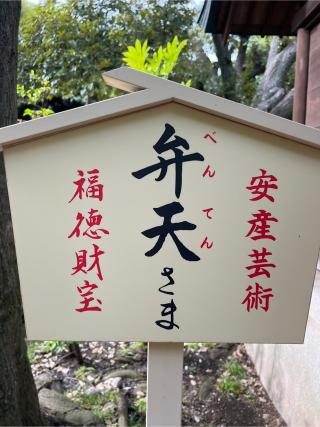 安産芸術
弁天さま
べんてん
福徳財宝